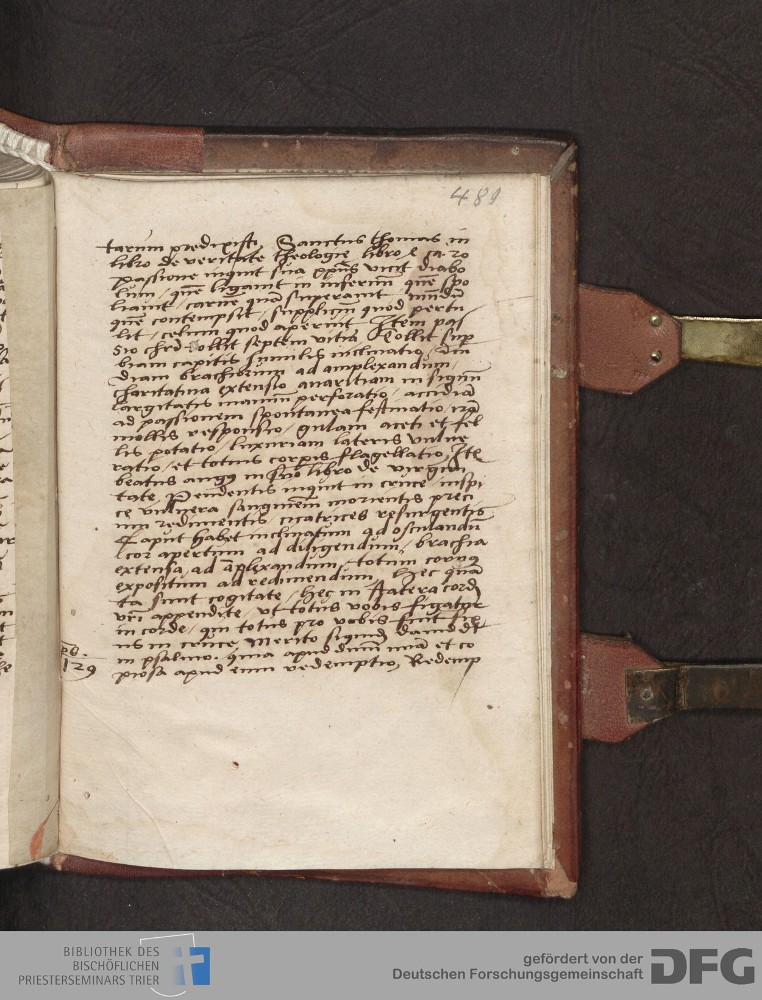 489
tarum prædixisti, Sanctus thomas in
libro de veritate theologie libro 4 ca. 20
passione inquit sua xpūs vicit diabo
lum, quē ligavit in infernū quē spo
liavit, carnē quā superavit mūdū
quē contempsit, suppliciū quod pertu
lit, celum quod aperuit Item pas
sio chrī tollit septem vitia Tollit sup
biam capitis humilis inclinatio, in
diam brachiorum ad amplexandum,
Charitativa extensio avaritiam in signū
largitatis manuū perforatio, accidiā
ad passionem spontanea festinatio, irā
mollis responsio, gulam aceti et fel
lis potatio, luxuriam lateris vulne
ratio, et totius corpis flagellatio, Itē
beatus augꝰ in suo libro de virgini
tate, Pendentis inquit in cruce, inspi
ce vulnera sanguinem morientis preci
um redimentis, cicatrices resurgentis
Caput habet inclinatum ad osculandū
cor apertum ad diligendum, brachia
extensa ad āplexandum, totum corpꝰ
expositum ad redimendum, hęc quā
ta sunt cogitate, hęc in statera cord
vrī appendite, vt totus vobis figatur
in corde, qui totus pro vobis fuit fix
us in cruce, Merito siquid dauid dt
ps. in psalmo. quia apud dnm mīa et co
129 piosa apud eum redemptio, Redemp
BIBLIOTHEK DES
BISCHÖFLICHEN
PRIESTERSEMINARS TRIER
gefördert von der
Deutschen Forschungsgemeinschaft
DFG